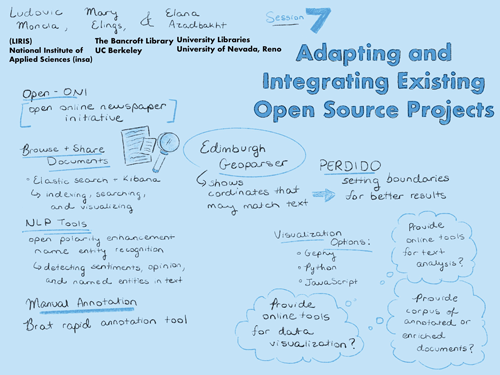 Ludovic Moncla,
Mary Elings,
& Elana Azadbakht
(LIRIS)
National Institute of
Applied Sciences (insa)
The Bancroft Library
UC Berkeley
University Libraries
University of Nevada, Reno
Session 7
Adapting and
Integrating Existing
Open Source Projects
Open-ONI
[open online newspaper
initiative]
Browse + Share
Documents
Elastic search + Kibana
↳ indexing, searching,
and visualizing
NLP Tools
open polarity enhancement
name entity recognition
↳ detecting sentiments, opinion,
and named entities in text
Manual Annotation
Brat rapid annotation tool
Edinburgh
Geoparser
↳ shows
coordinates that
may match text
PERDIDO
setting boundaries
for better results
Visualization
Options:
Gephy
Python
JavaScript
Provide
online tools
for text
analysis?
Provide
online tools
for data
visualization?
Provide
corpus of
annotated or
enriched
documents?